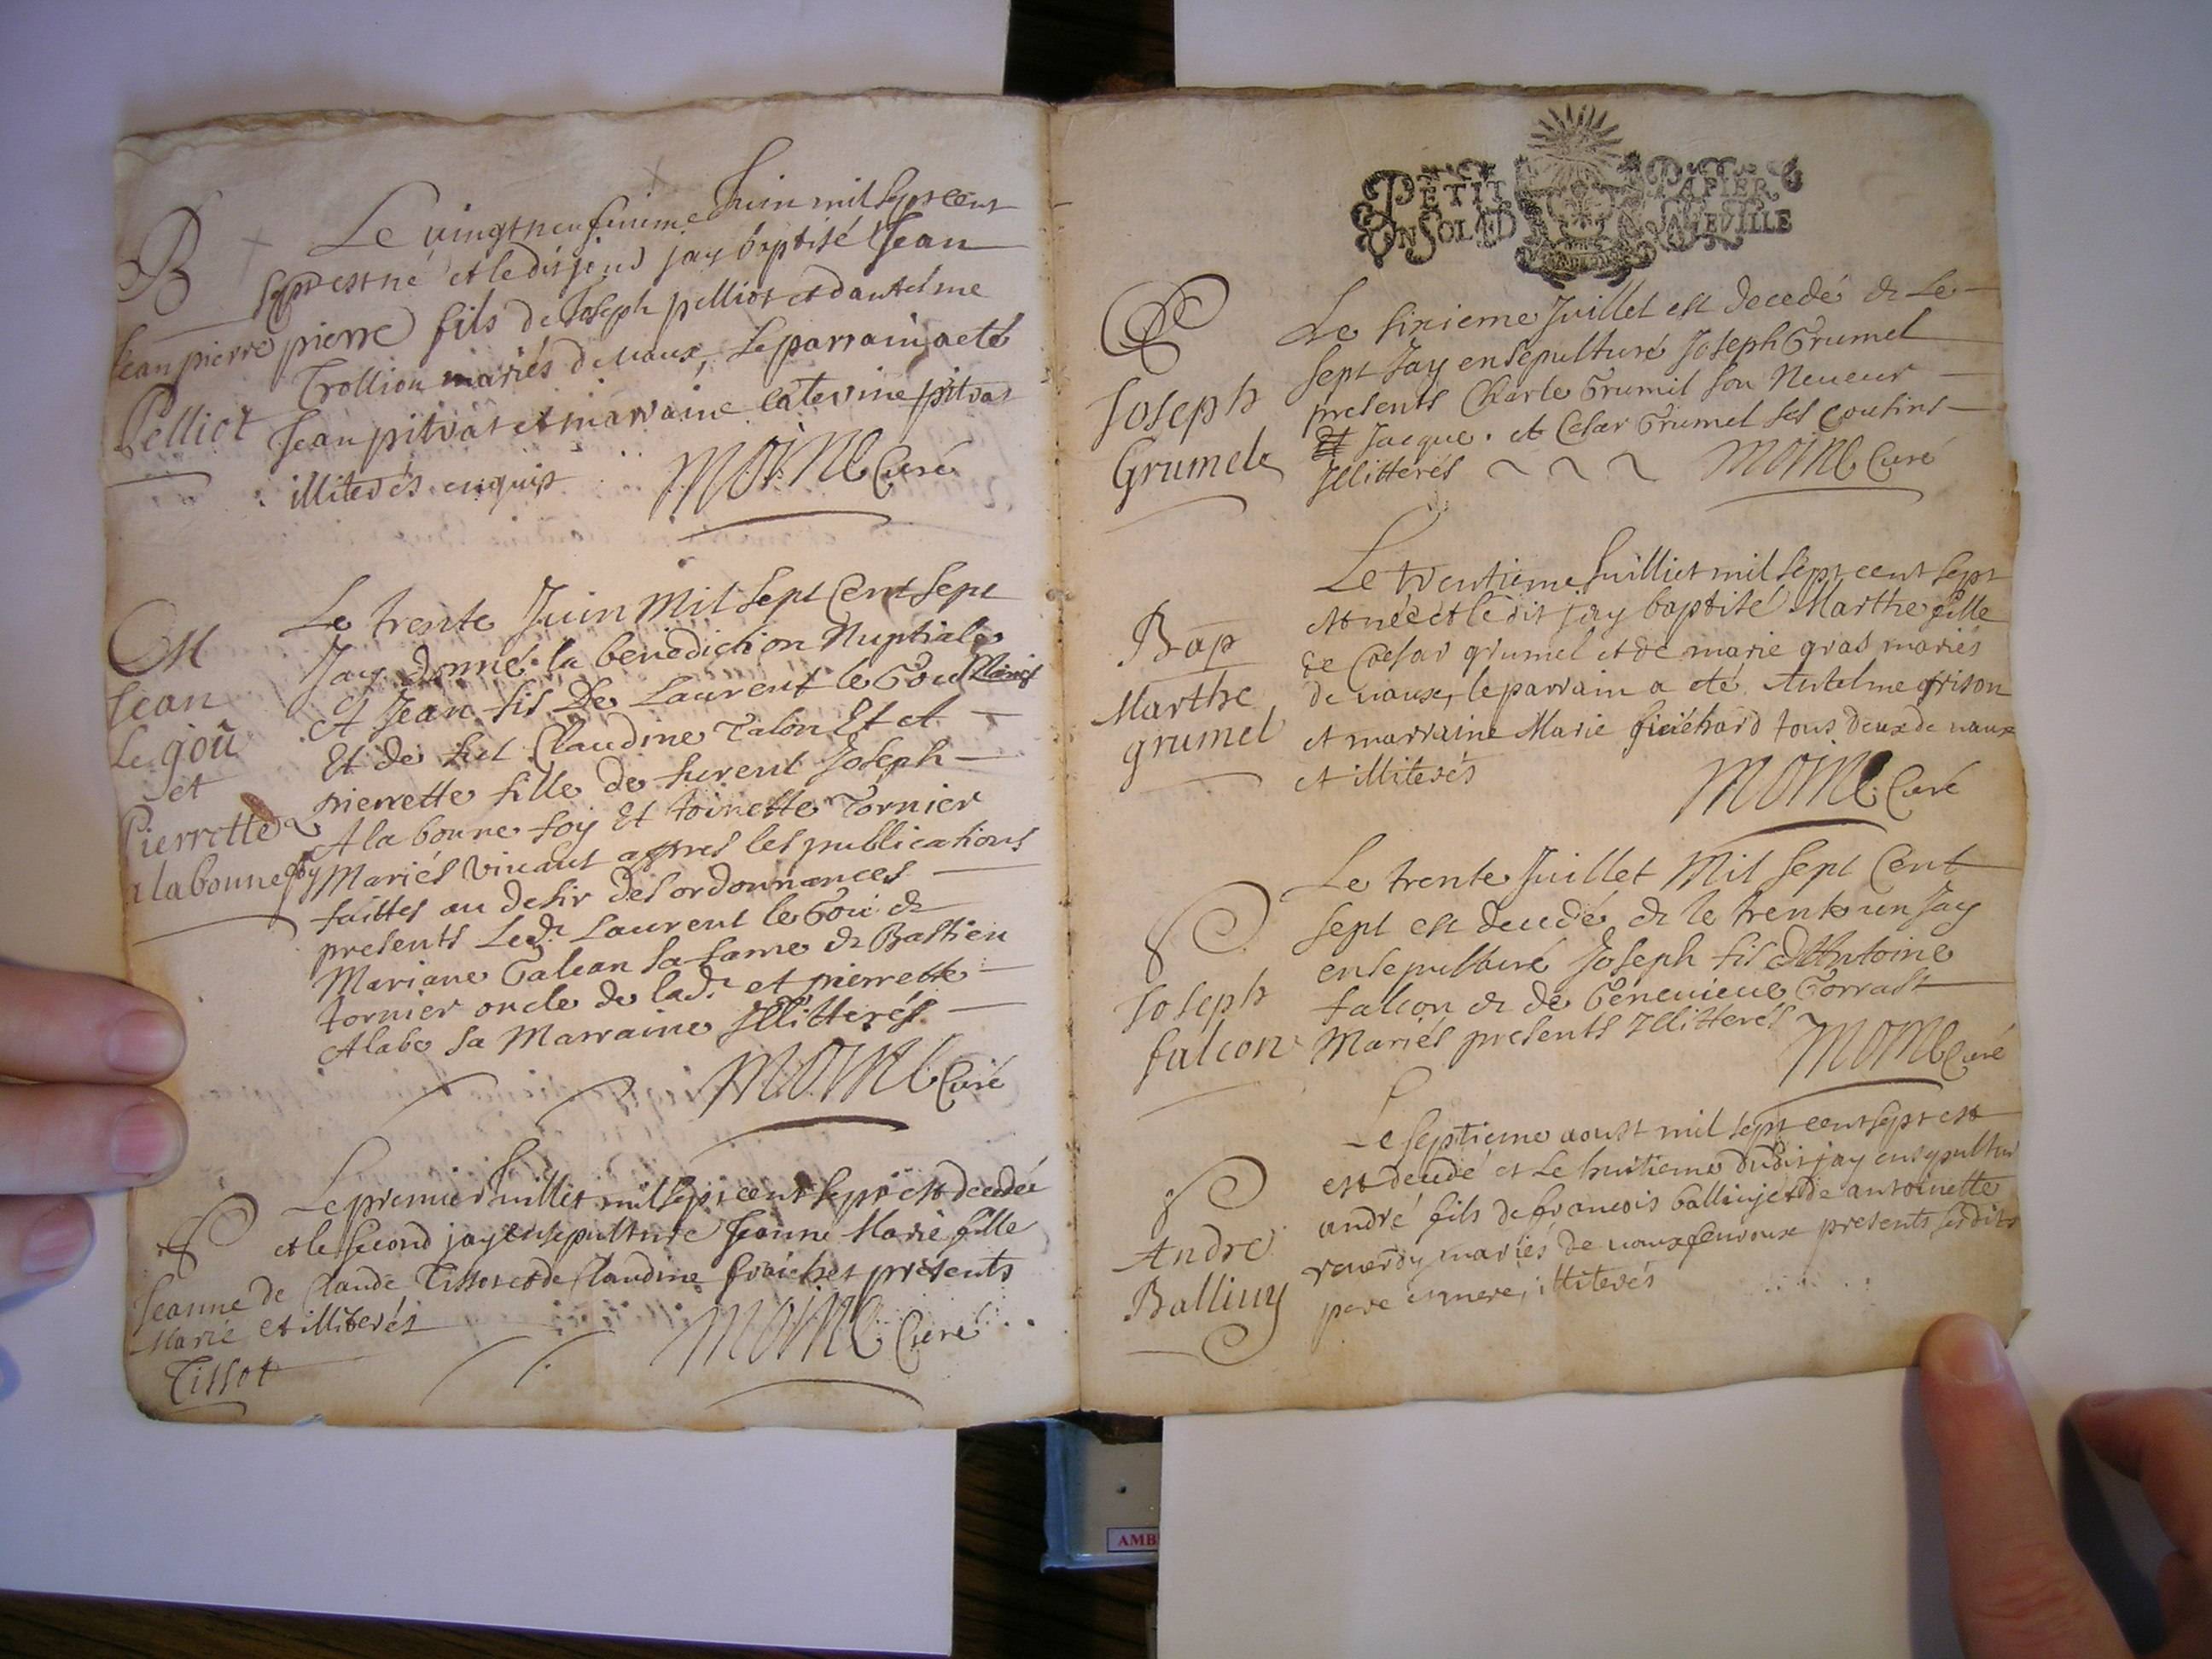 B
Jean pierre
Pelliot
Le vingt neufvieme Juin mil sept cent
sept est né et le dit jour jay baptisé Jean
pierre fils de Joseph pelliot et dantelme
Trollion mariés de vaux, le parrain a eté
Jean pitrat et marraine caterine pitrat
illiterés enquis
MOINE Curé
M
Jean
Le goû
et
Pierrette
a labonnefoy
Le trente Juin Mil Sept Cent Sept
Jay donné la benediction Nuptiale
A Jean fis De Laurent le Gou
Et de fut Claudine Talon Et A
pierrette fille de furent Joseph
A la bonne foy Et toinette Tornier
Mariés vivant appres les publications
faittes au desir des ordonnances
presents Led.t Laurent le Gou &
Mariane Galean sa fame & Bastien
tornier oncle de lad.t et pierrette
Alabo sa Marraine Illitterés
MOINE Curé
Jeanne
Marie
Tissot
Le premier Juillet mil sept cent sept est decedée
et le second jay ensepulturé Jeanne Marie fille
de Claude Tissot et de Claudine fraichet présents
et illiterés
MOINE Curé
PETIT PAPIER
UN SOL LA FEVILLE
Joseph
Grumel
Le sixieme Juillet est decedé & Le
sept Jay ensepulturé Joseph Grumel
presents Charle Grumil son Neueur
Et Jacque. et Cesar Grumel ses cousins
Illitterés
MOINE Curé
Bap
Marthe
grumel
Le trentieme Juilliet mil sept cent sept
est née et le dit jay baptisé Marthe fille
de Caesar grumel et de marie gras mariés
de vaux, le parrain a eté Antelme frison
et marraine Marie tous deux de vaux
et illiterés
MOINE Curé
Joseph
falcon
Le trente Juillet Mil Sept Cent
sept est decedé & le trente un Jay
ensepulturé Joseph fis d'Antoine
falcon & de Genevieve Gorrast
Mariés presents Illitterés
MOINE Curé
André
Balliuy
Le septieme aoust mil sept cent sept est
est decedé et Le huitieme dudit jay ensepultur
andré fils de francois balliuj et de antoinette
reverdy mariés de vaux fevroux presents sesdits
pere et mere, illiterés
AMB